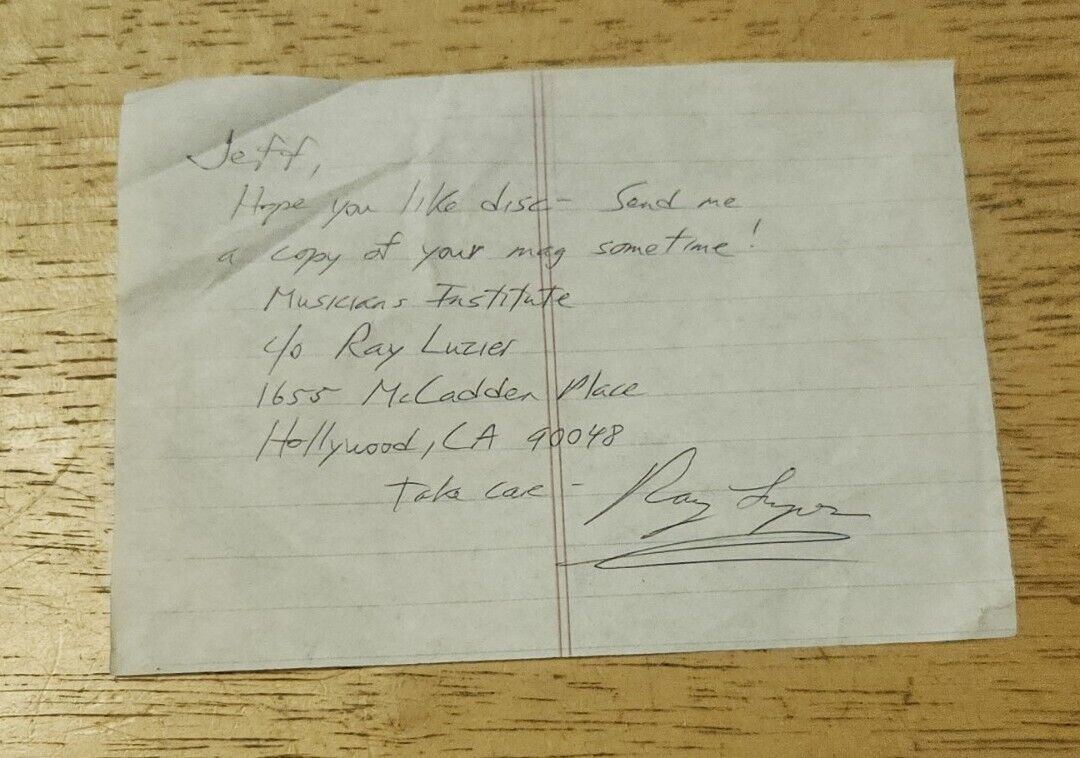 Jeff,
Hope you like disc - Send me
a copy of your mag sometime!
Musicians Institute
c/o Ray Luzier
1655 McCadden Place
Hollywood, CA 90048
Take care - Ray Luzier